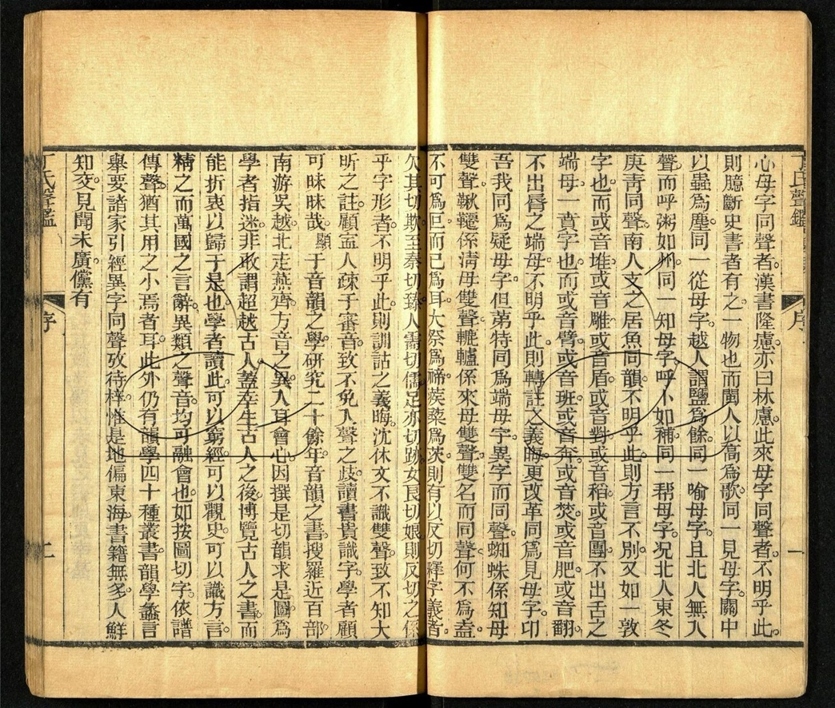 心母字同聲者漢書隆慮亦曰林慮此來母字同聲者不明乎此
則臆斷史書者有之一物也而閩人以高為歌同一見母字關中
以蟲為塵同一從母字越人謂鹽為餘同一喻母字且北人無入
聲而呼粥如州同一知母字呼卜如補同一幫母字況北人東冬
庚青同聲南人支之居魚同韻不明乎此則方言不別又如一敦
字也而或音堆或音雕或音盾或音對或音稻或音團不出舌之
端母一賁字也而或音臂或音班或音奔或音焚或音肥或音翻
不出脣之端母不明乎此則轉註之義晦更改革同為見母字卬
吾我同為疑母字但弟特同為端母字異字而同聲蜘蛛係知母
雙聲鞦韆係淸母雙聲轆轤係來母雙聲雙名而同聲何不為盍
不可為叵而已為耳大祭為禘蒺藜為茨則有以反切釋字義者
欠其切欺至秦切臻人需切儒足亦切跡女良切娘則反切之係
乎字形者不明乎此則訓詁之義晦沈休文不識雙聲致不知大
昕之註顧寍人疎于審音致不免入聲之歧讀書貴識字學者顧
可昧昧哉顯于音韻之學研究二十餘年音韻之書搜羅近百部
南游吳越北走燕齊方音之異入耳會心因撰是切韻求是圖為
學者指迷非敢謂超越古人蓋幸生古人之後博覽古人之書而
能折衷以歸于是也學者讀此可以窮經可以觀史可以識方言
精之而萬國之言辭異類之聲音均可融會也如按圖切字依譜
傳聲猶其用之小焉者耳此外仍有韻學四十種叢書韻學蠡言
舉要諸家引經異字同聲攷待梓惟是地偏東海書籍無多人鮮
知交見聞未廣儻有
丁氏聲鑑
序
二
序
一